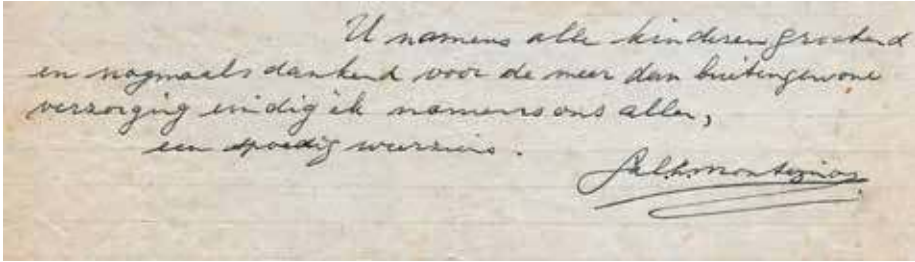 U namens alle kinderen groetend
en nogmaals dankend voor de meer dan buitengewone
verzorging eindig ik namens ons allen,
een spoedig weerziens.
Montezinos